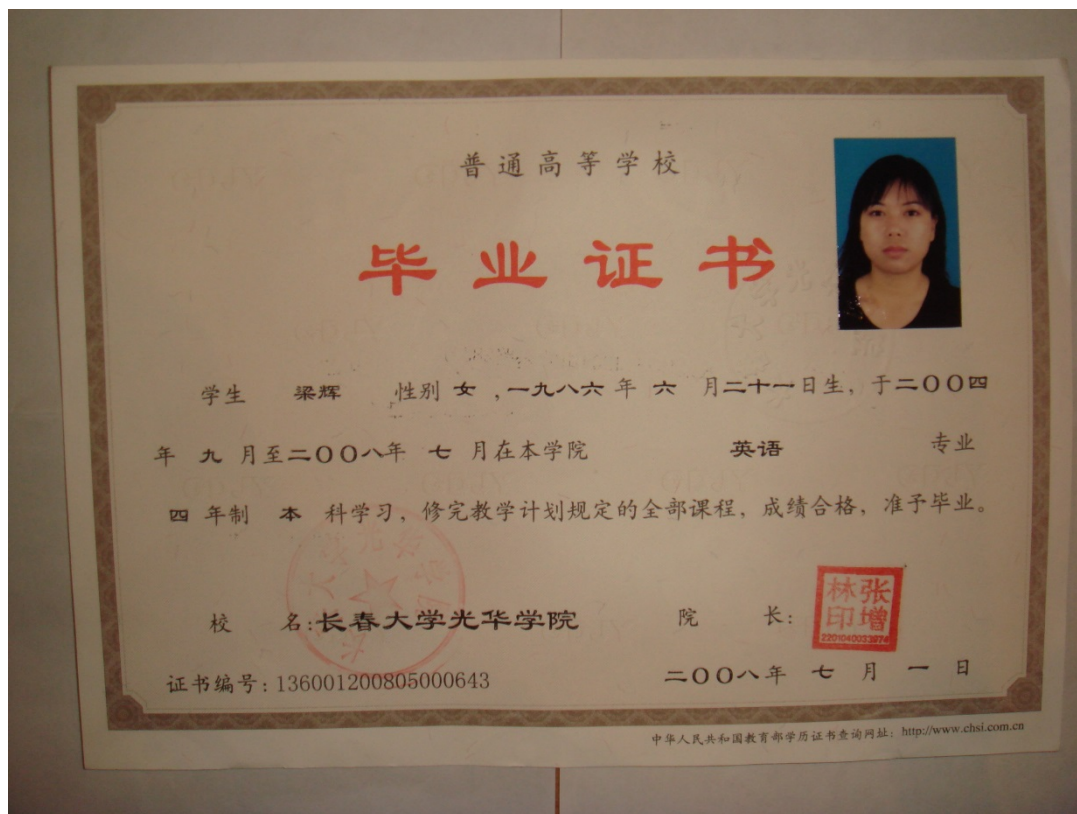 普通高等学校
毕业证书
学生 梁辉 性别 女 ,一九八六 年 六 月二十一日生，于二〇〇四
年 九 月至二〇〇八年 七 月在本学院 英语 专业
四 年制 本 科学习，修完教学计划规定的全部课程，成绩合格，准予毕业。
校 名:长春大学光华学院 院 长:
张增林印
2201040033974
证书编号: 136001200805000643 二〇〇八年 七 月 一 日
中华人民共和国教育部学历证书查询网址: http://www.chsi.com.cn